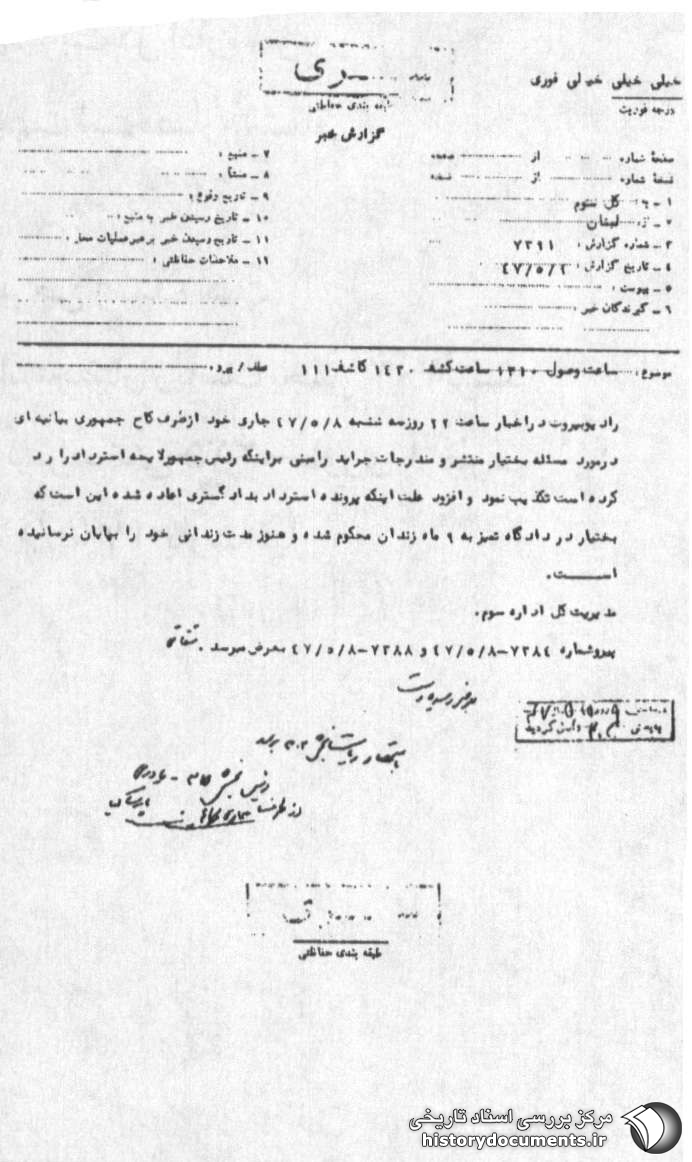 سری
طبقه بندی حفاظتی
خیلی خیلی خیلی فوری
درجه فوریت
گزارش خبر
صفحهٔ شماره از صفحه
نسخهٔ شماره از نسخه
۱ – به کل سوم
۲ – از لبنان
۳ – شماره گزارش : ۷۳۹۱
۴ – تاریخ گزارش : ۴۷/۵/۹
۵ – پیوست :
۶ – گیرندگان خبر :
۷ – منبع :
۸ – منشأ :
۹ – تاریخ وقوع :
۱۰ – تاریخ رسیدن خبر به منبع :
۱۱ – تاریخ رسیدن خبر برهبر عملیات محل :
۱۲ – ملاحظات حفاظتی :
موضوع : ساعت وصول ۱۳۱۰ ساعت کشف ۱۴۲۰ کاشف ۱۱۱
رادیو بیروت در اخبار ساعت ۲۲ روز سه شنبه ۴۷/۵/۸ جاری خود از طرف کاخ جمهوری بیانیه ای
در مورد مسئله بختیار منتشر و مندرجات جراید را مبنی براینکه رئیس جمهور لایحه استرداد را رد
کرده است تکذیب نمود و افزود علت اینکه پرونده استرداد بدادگستری اعاده شده این است که
بختیار در دادگاه تمیز به ۹ ماه زندان محکوم شده و هنوز مدت زندانی خود را بپایان نرسانیده
است.
مدیریت کل اداره سوم.
پیرو شماره ۷۳۸۴-۴۷/۵/۸ و ۷۳۸۸-۴۷/۵/۸ بعرض میرسد.
بعرض رسیده است
طبقه بندی حفاظتی
مرکز بررسی اسناد تاریخی
historydocuments.ir